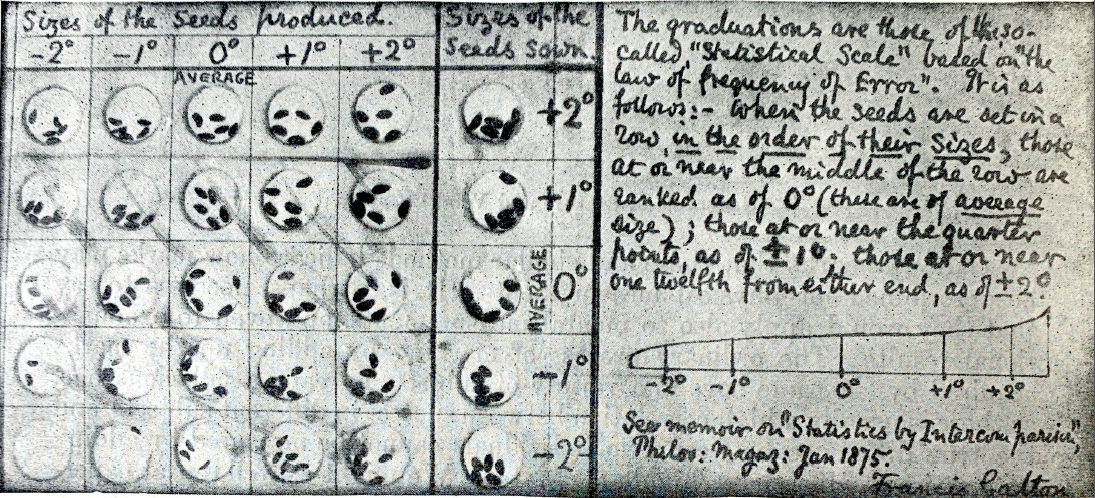 Sizes of the Seeds produced.
-2° -1° 0° +1° +2°
AVERAGE
Sizes of the
Seeds Sown.
+2°
+1°
0°
AVERAGE
-1°
-2°
The graduations are those of the so-
called, "Statistical Scale" based on "the
law of frequency of Error". It is as
follows:- When the seeds are set in a
row, in the order of their Sizes, those
at or near the middle of the row are
ranked as of 0° (these are of average
size); those at or near the quarter
points, as of ±1°. those at or near
one twelfth from either end, as of ±2°.
-2° -1° 0° +1° +2°
See memoir on "Statistics by Intercomparison",
Philos: Magaz: Jan 1875.
Francis Galton